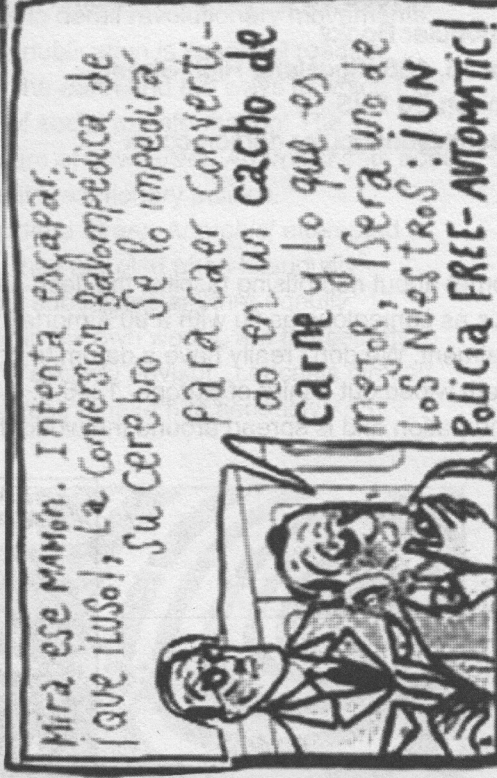 Mira ese MAMÓn. Intenta escapar.
¡QUE ILUSO!, La Conversión Balompédica de
su cerebro se lo impedirá
para caer converti-
do en un cacho de
carne y Lo que es
mejor, ¡Será uno de
LOS NUESTROS: ¡UN
POLICIA FREE-AUTOMATIC!